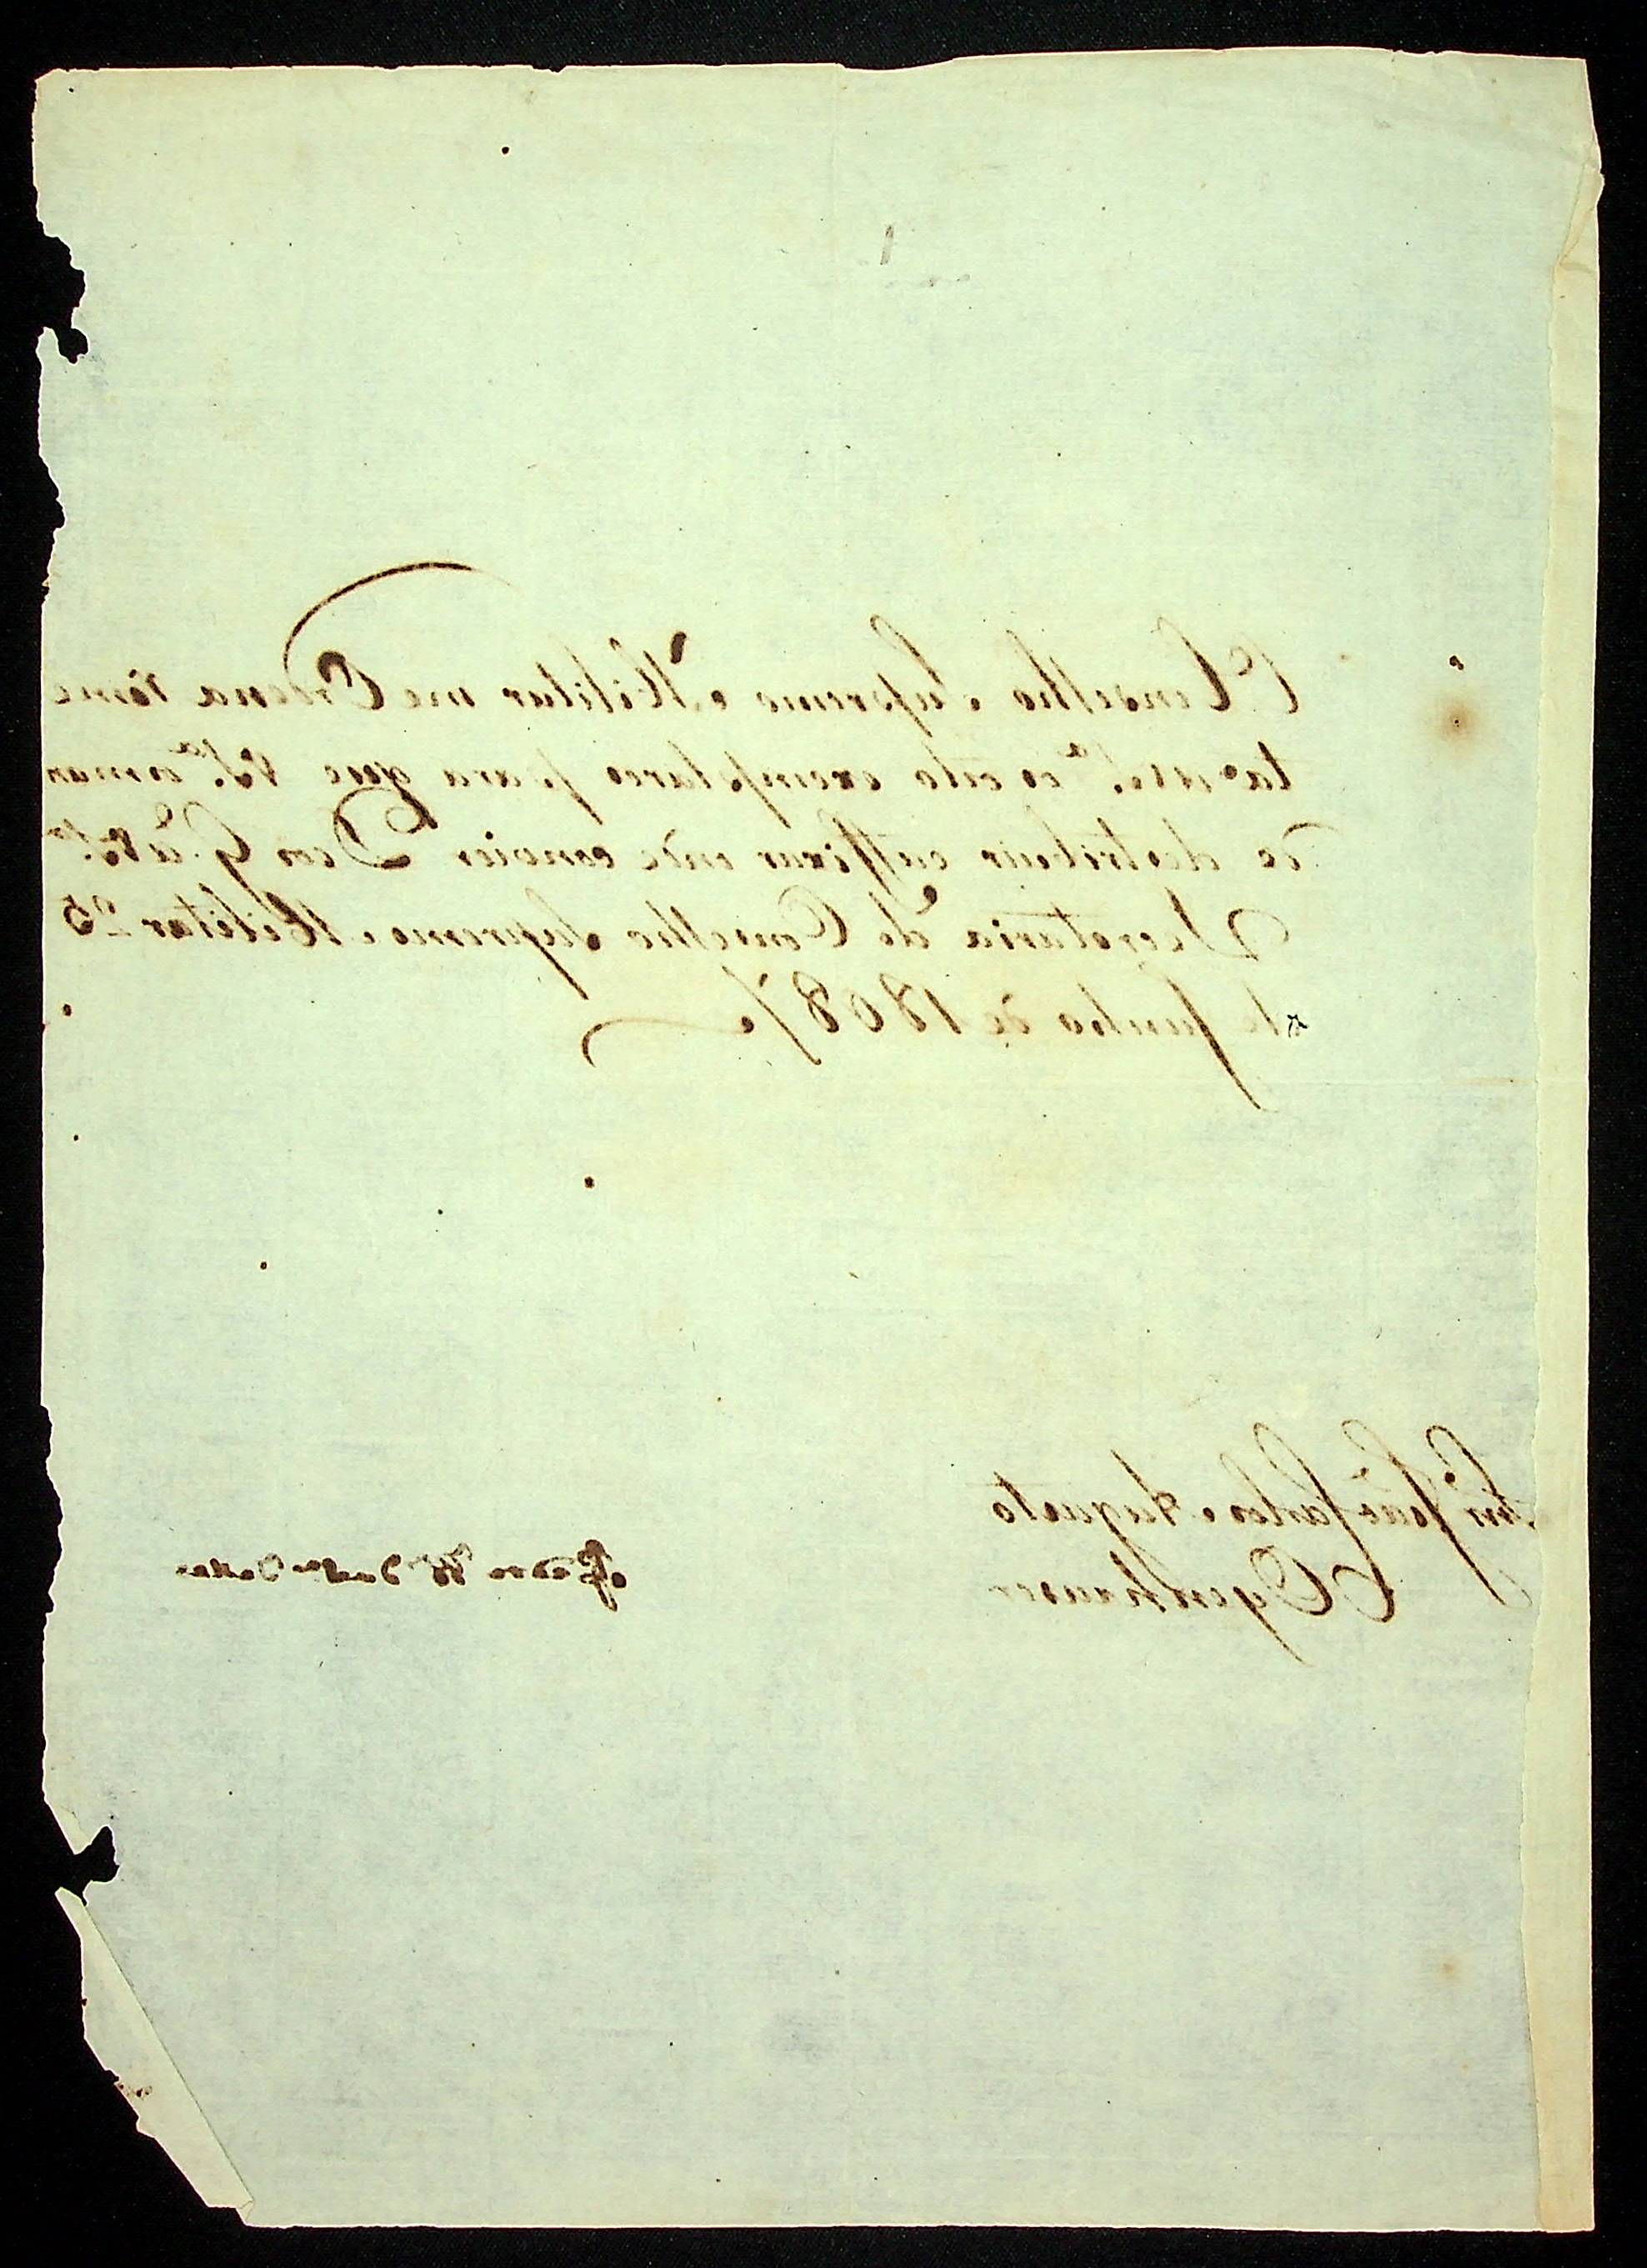 O Conselho Supremo Militar me Ordena reme
ta a V S.ª os oito exemplares para que V S.ª os man
de destribuir e affixar onde convier Deos G.e a V S.ª
Secretaria do Conselho Supremo Militar 25
de Junho de 1808
Snr João Carlos Augusto
Oyenhausen
Pedro